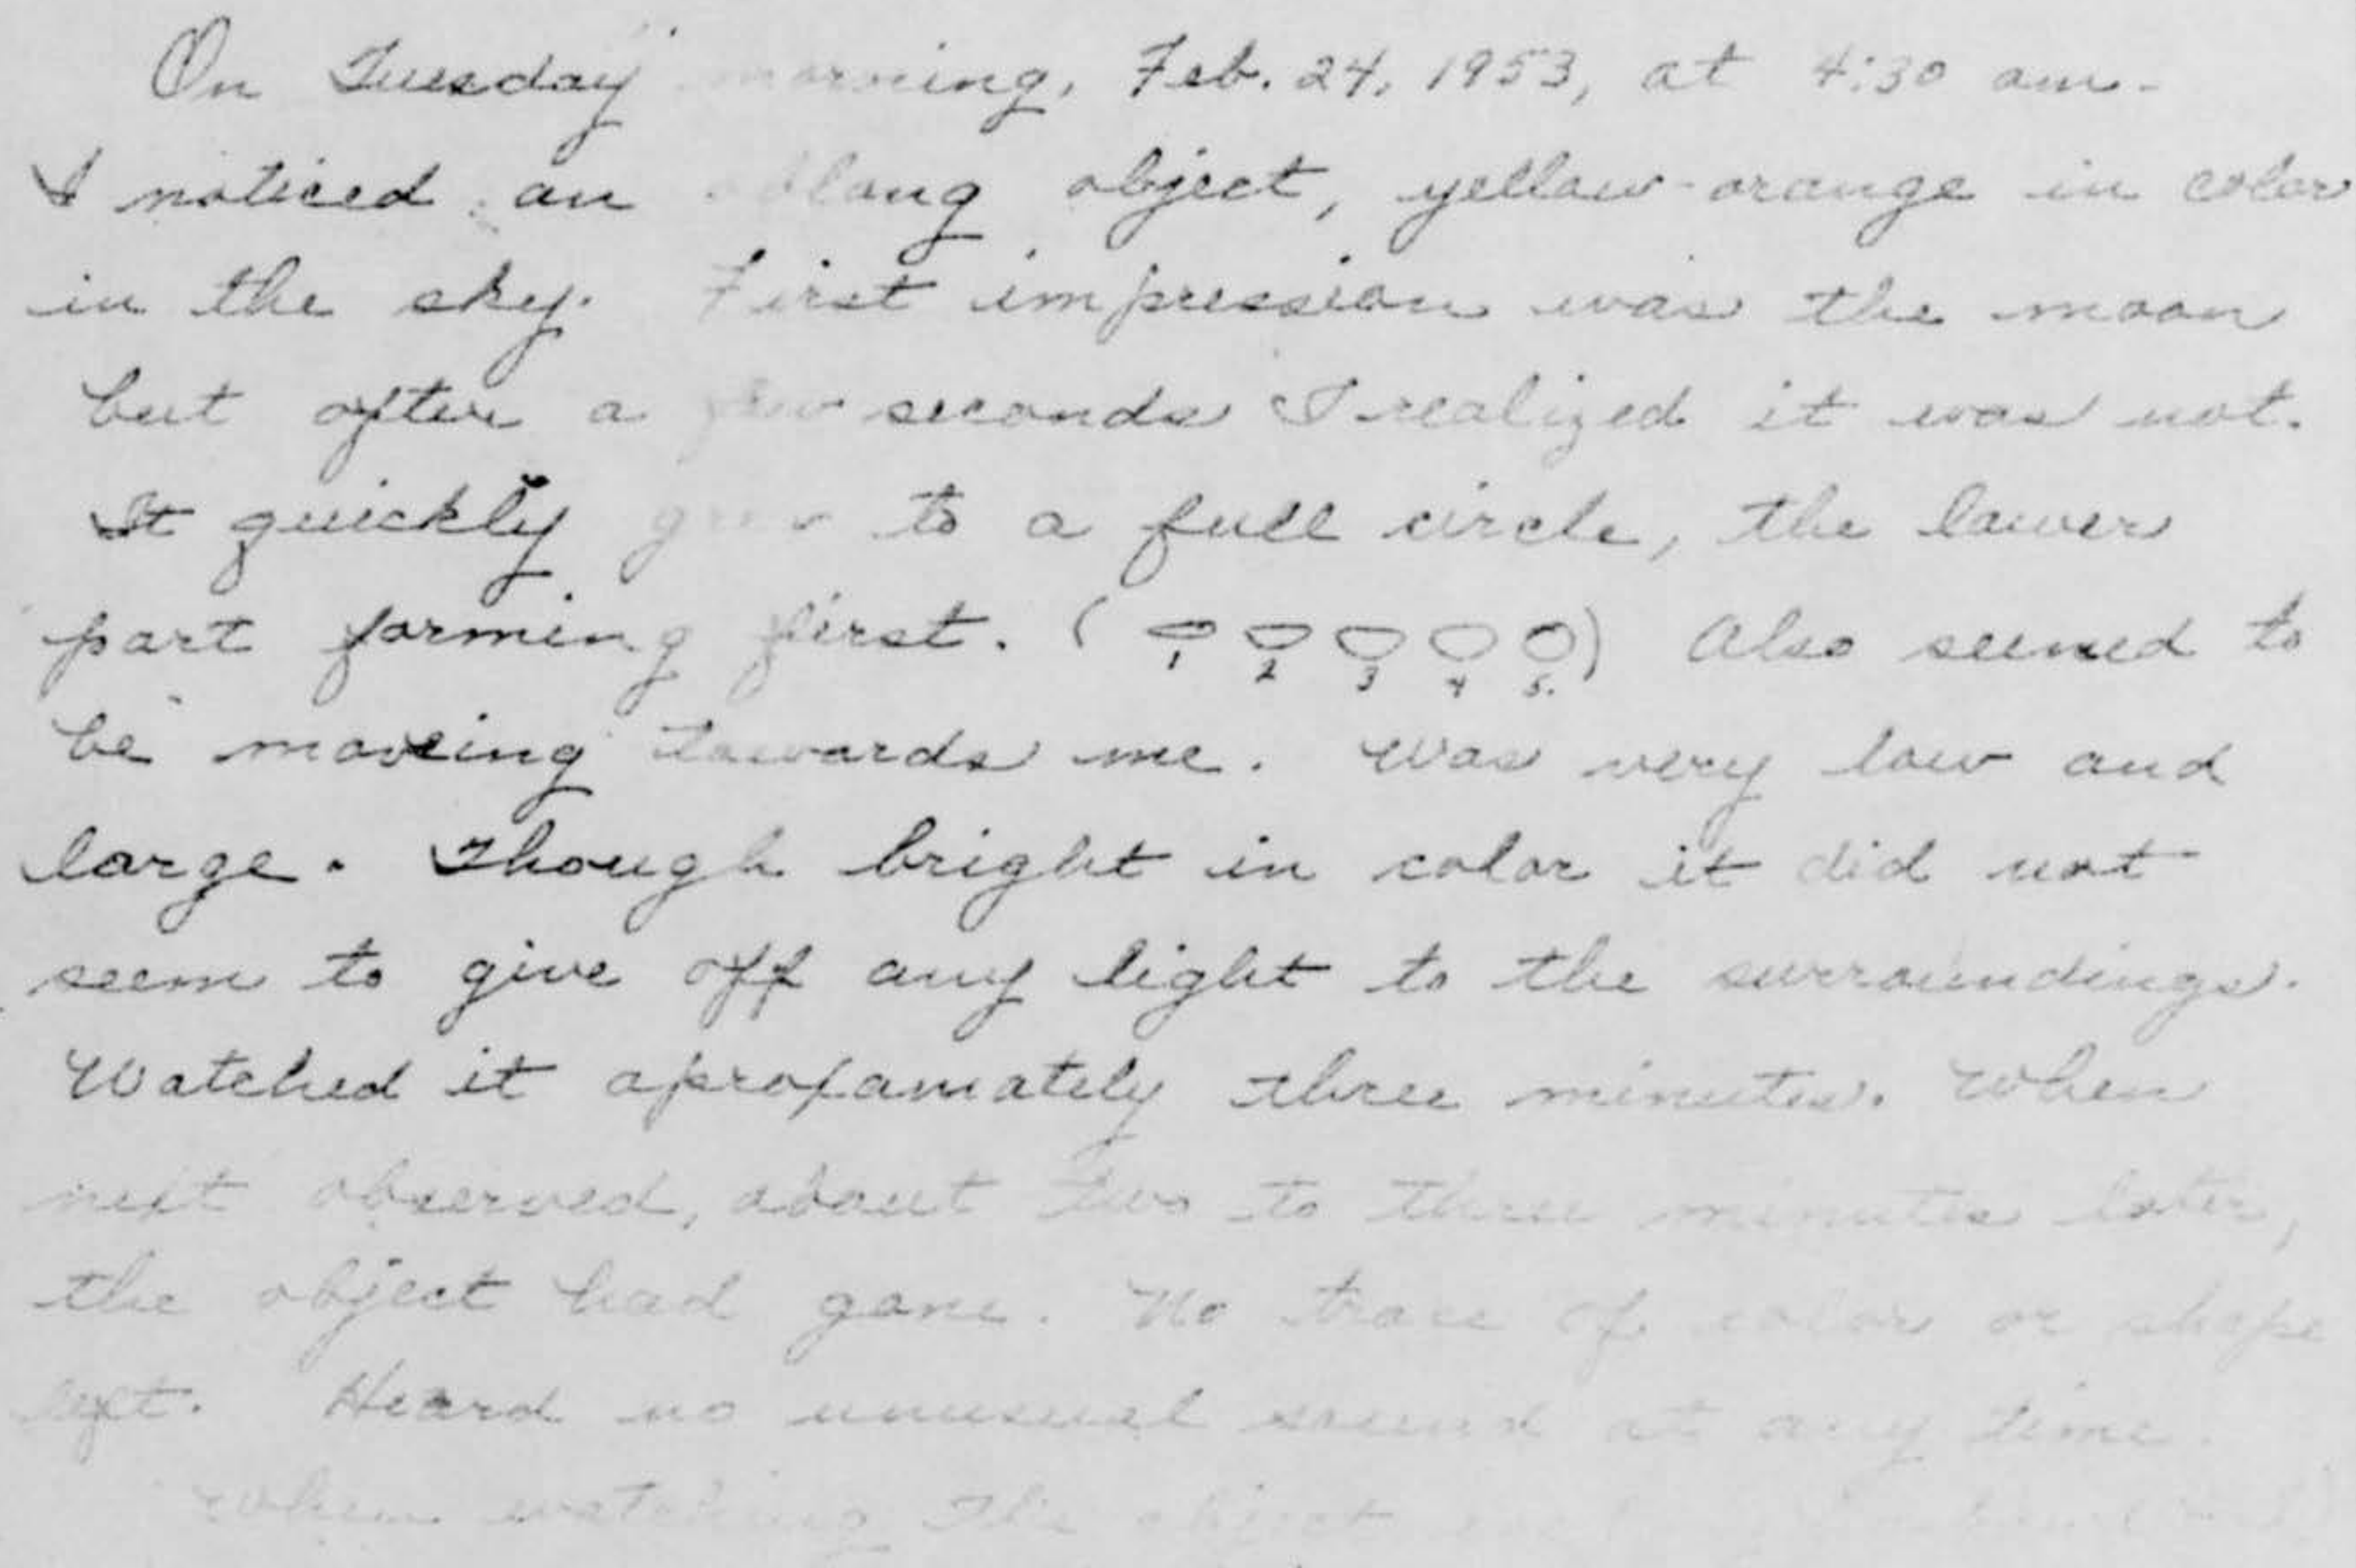 On Tuesday morning, Feb. 24, 1953, at 4:30 am.
I noticed an oblong object, yellow-orange in color
in the sky. First impression was the moon
but after a few seconds I realized it was not.
It quickly grew to a full circle, the lower
part forming first. ( 1 2 3 4 5. ) Also seemed to
be moving towards me. Was very low and
large. Though bright in color it did not
seem to give off any light to the surroundings.
Watched it aproxamately three minutes. When
next observed, about two to three minutes later,
the object had gone. No trace of color or shape
left. Heard no unusual sound at any time.
When watching the object